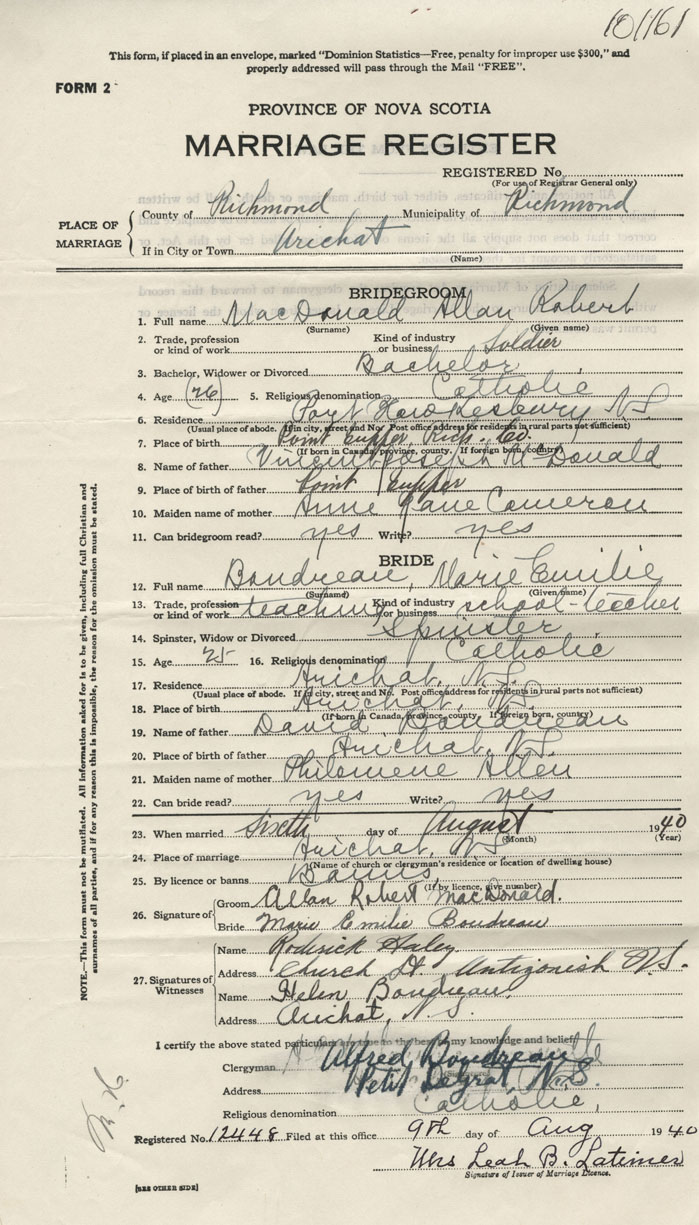 101161
This form, if placed in an envelope, marked "Dominion Statistics—Free, penalty for improper use $300," and
properly addressed will pass through the Mail "FREE".
FORM 2
PROVINCE OF NOVA SCOTIA
MARRIAGE REGISTER
REGISTERED No.
(For use of Registrar General only)
PLACE OF MARRIAGE
County of Richmond Municipality of Richmond
If in City or Town Arichat
(Name)
BRIDEGROOM
1. Full name MacDonald Allan Robert
(Surname) (Given name)
2. Trade, profession or kind of work Kind of industry or business Soldier
3. Bachelor, Widower or Divorced Bachelor
4. Age (26) 5. Religious denomination Catholic
6. Residence Port Hawkesbury N.S.
(Usual place of abode. If in city, street and No. Post office address for residents in rural parts not sufficient)
7. Place of birth Point Tupper, Rich. Co.
(If born in Canada, province, county. If foreign born, country)
8. Name of father Vincent Joseph McDonald
9. Place of birth of father Point Tupper
10. Maiden name of mother Anne Jane Cameron
11. Can bridegroom read? yes Write? yes
BRIDE
12. Full name Boudreau, Marie Emilie
(Surname) (Given name)
13. Trade, profession or kind of work teaching Kind of industry or business school-teacher
14. Spinster, Widow or Divorced Spinster
15. Age 25 16. Religious denomination Catholic
17. Residence Arichat, N.S.
(Usual place of abode. If in city, street and No. Post office address for residents in rural parts not sufficient)
18. Place of birth Arichat, N.S.
(If born in Canada, province, county. If foreign born, country)
19. Name of father David Boudreau
20. Place of birth of father Arichat, N.S.
21. Maiden name of mother Philomene Allen
22. Can bride read? yes Write? yes
23. When married Sixth day of August 1940
(Month) (Year)
24. Place of marriage Arichat, N.S.
(Name of church or clergyman's residence or location of dwelling house)
25. By licence or banns Banns
(If by licence, give number)
26. Signature of
Groom Allan Robert MacDonald.
Bride Marie Emilie Boudreau
27. Signatures of Witnesses
Name Roderick Haley
Address Church St. Antigonish N.S.
Name Helen Boudreau
Address Arichat, N.S.
I certify the above stated particulars are true to the best of my knowledge and belief
Clergyman Alfred Boudreau
(Signature)
Address Petit Degrat, N.S.
Religious denomination Catholic,
Registered No. 12448 Filed at this office 9th day of Aug 1940
Mrs Leah B. Latimer
Signature of Issuer of Marriage Licence.
[SEE OTHER SIDE]
NOTE.—This form must not be mutilated. All information asked for is to be given, including full Christian and
surnames of all parties, and if for any reason this is impossible, the reason for the omission must be stated.